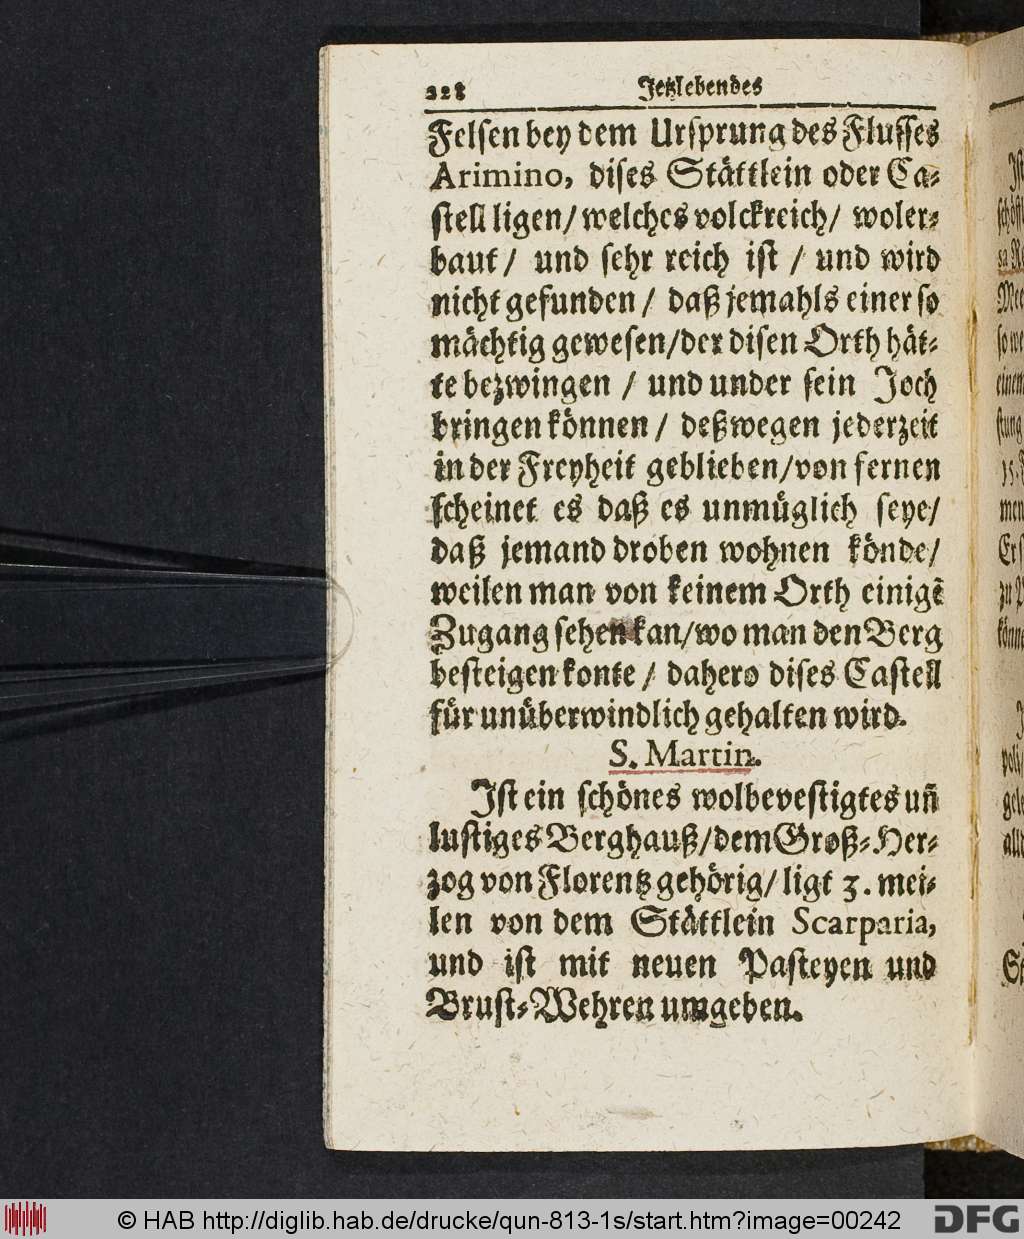 228 Jetzlebendes
Felsen bey dem Ursprung des Flusses
Arimino, dises Stättlein oder Ca-
stell ligen/ welches volckreich/ woler-
baut/ und sehr reich ist / und wird
nicht gefunden / daß jemahls einer so
mächtig gewesen/der disen Orth hät-
te bezwingen / und under sein Joch
bringen können / deßwegen jederzeit
in der Freyheit geblieben/von fernen
scheinet es daß es unmüglich seye/
daß jemand droben wohnen könde/
weilen man von keinem Orth einigẽ
Zugang sehen kan/wo man den Berg
besteigen konte / dahero dises Castell
für unüberwindlich gehalten wird.
S. Martin.
Ist ein schönes wolbevestigtes uñ
lustiges Berghauß/dem Groß-Her-
zog von Florentz gehörig/ ligt 3. mei-
len von dem Stättlein Scarparia,
und ist mit neuen Pasteyen und
Brust-Wehren umgeben.
© HAB http://diglib.hab.de/drucke/qun-813-1s/start.htm?image=00242
DFG